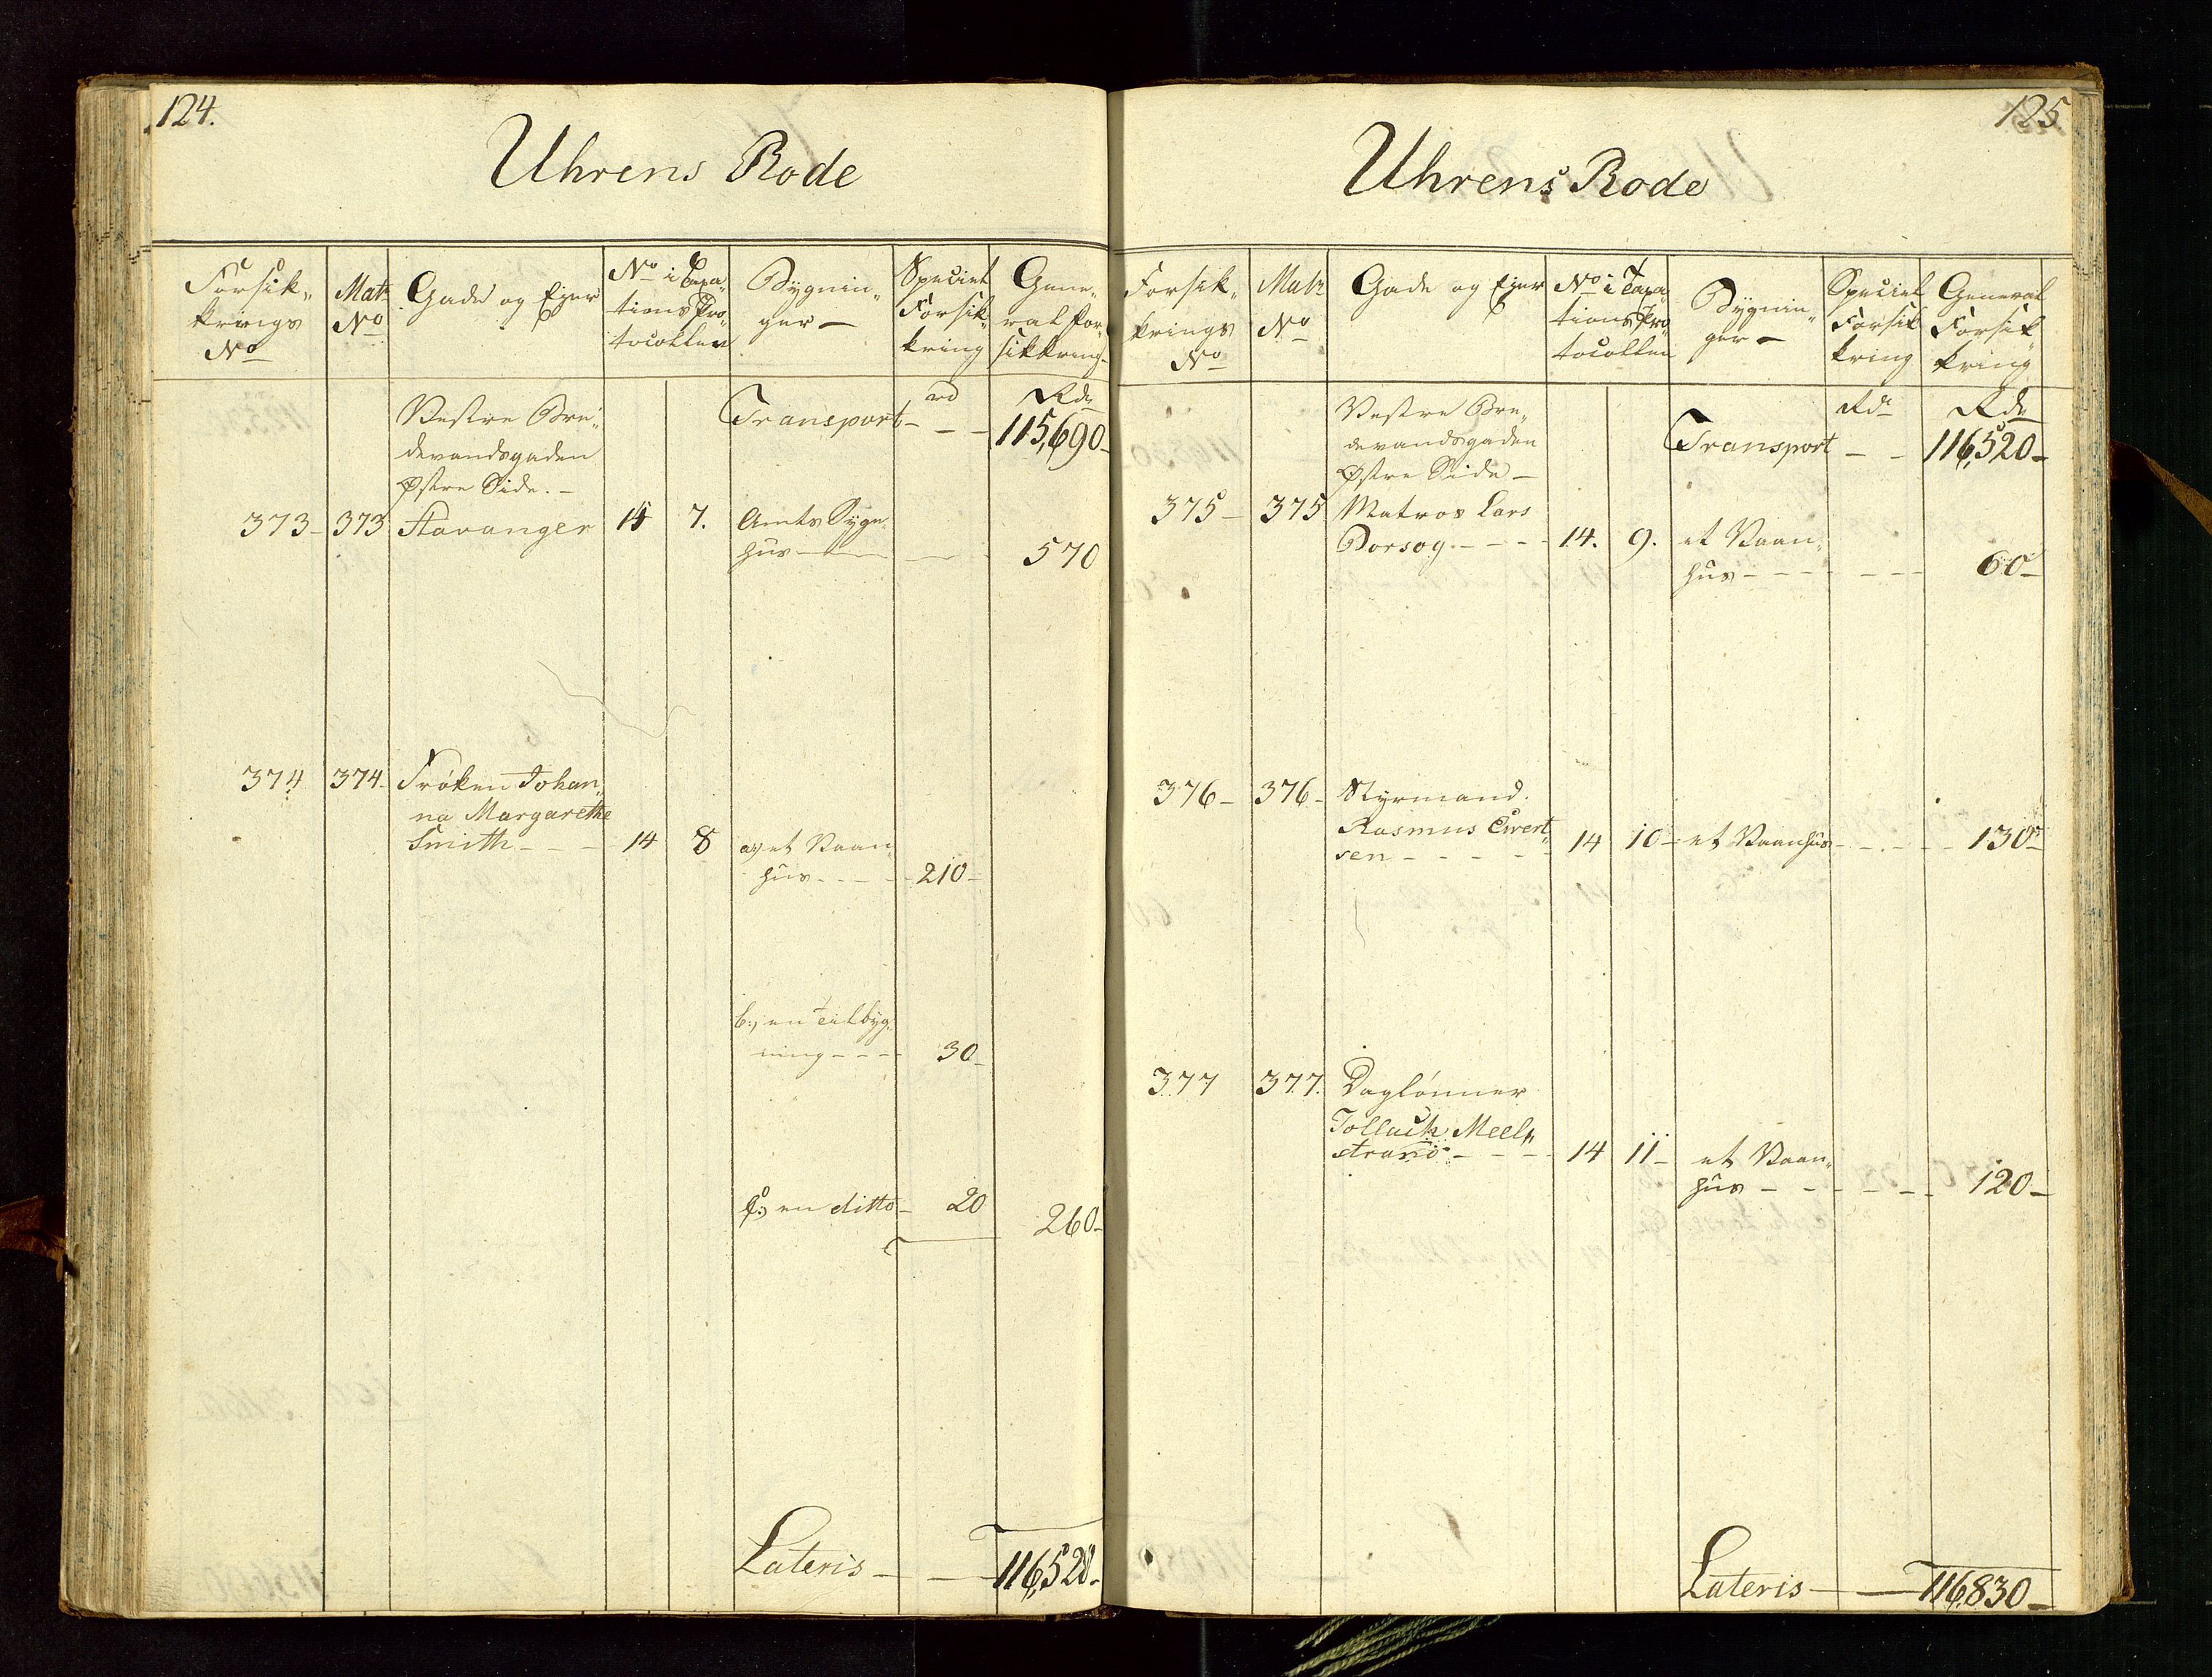 124.
Uhrens Rode
Forsik„
krings
No
Matr
No
Gade og Eyer
No i Taxa„
tions Pro„
tocollen
Bygnin„
ger —
Speciel
Forsik„
kring
Gene„
ral For„
sikkring
Vestre Bre„
devandsgaden
Østre Side. —
Transport — —
rd
Rdr
115,690 —
373 — 373 Stavanger 14 7. Amts Syge„
hus — — 570
374 374 — Frøken Johan„
na Margarethe
Smith — — — 14 8 a, et Vaan„
hus — — — 210 —
b., en Tilbyg„
ning — — — 30 —
c., en ditto — 20 260 —
Lateris — — 116,520 —
125
Uhrens Rode
Forsik„
krings
No
Matr
No
Gade og Eyer
No i Taxa„
tions Pro„
tocollen
Bygnin„
ger —
Speciel
Forsik„
kring
General
Forsik„
kring
Vestre Bre„
devandsgaden
Østre Side —
Transport — —
Rdr
Rdr
116,520 —
375 — 375 Matros Lars
Dorsog — — — 14. 9. et Vaan„
hus — — — — — 60 —
376 — 376 — Styrmand
Rasmus Ewert„
sen — — — — 14 10 — et Vaanhus — — — 130 —
377 377. Daglønner
Tollach Meel„
strand — — — 14 11 — et Vaan„
hus — — — — — 120 —
Lateris — — 116,830 —